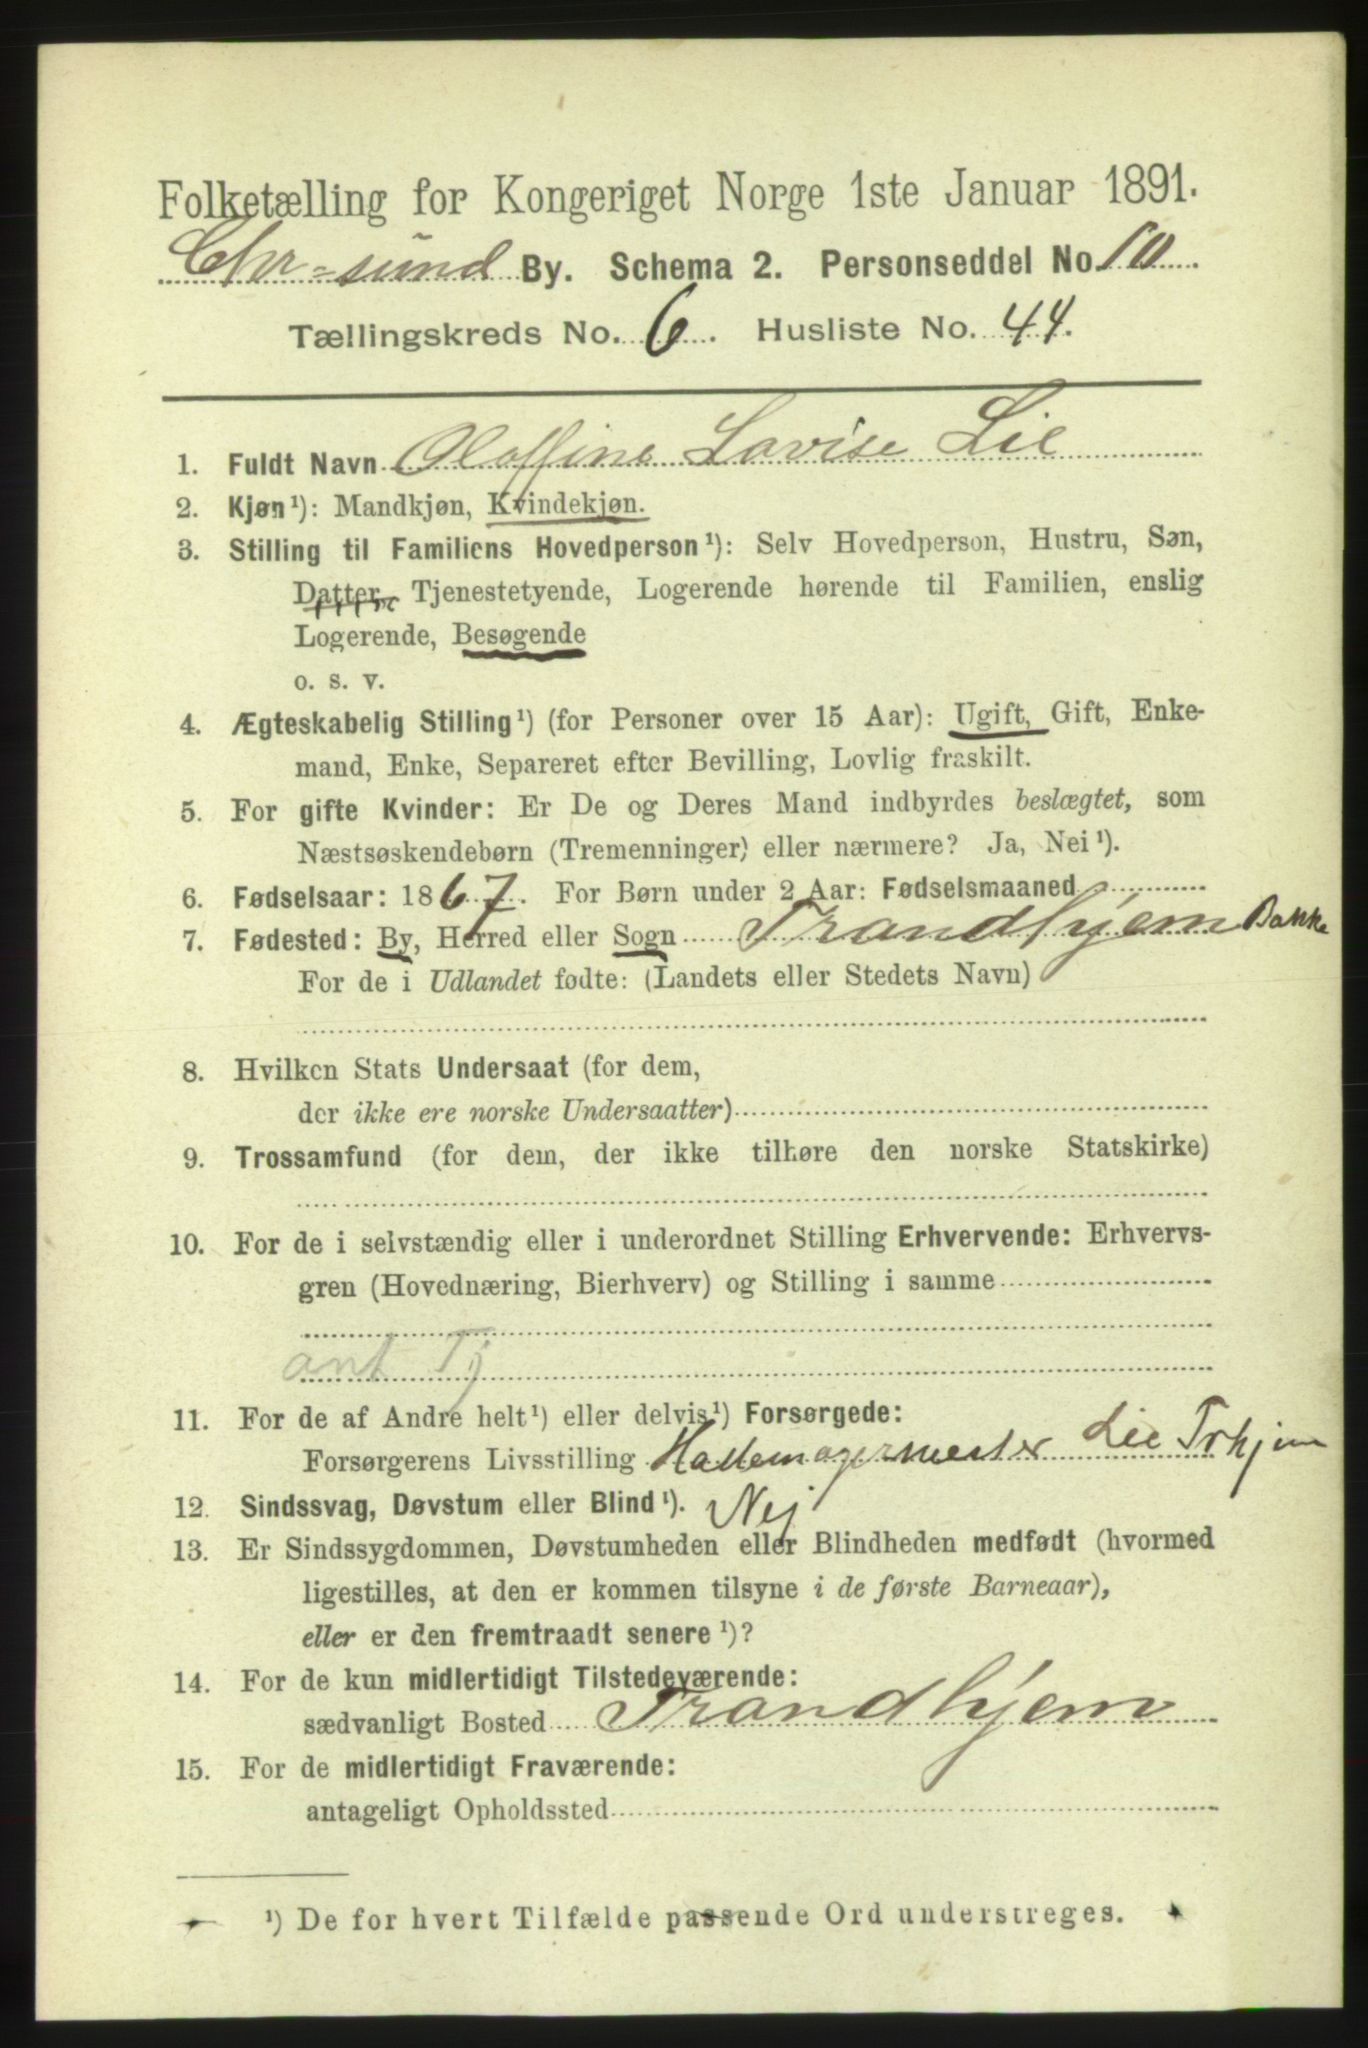 Folketælling for Kongeriget Norge 1ste Januar 1891.
Chr=sund By. Schema 2. Personseddel No 10
Tællingskreds No. 6. Husliste No. 44.
1. Fuldt Navn Olaffine Lovise Lie
2. Kjøn¹): Mandkjøn, Kvindekjøn.
3. Stilling til Familiens Hovedperson¹): Selv Hovedperson, Hustru, Søn,
Datter, Tjenestetyende, Logerende hørende til Familien, enslig
Logerende, Besøgende
o. s. v.
4. Ægteskabelig Stilling¹) (for Personer over 15 Aar): Ugift, Gift, Enke-
mand, Enke, Separeret efter Bevilling, Lovlig fraskilt.
5. For gifte Kvinder: Er De og Deres Mand indbyrdes beslægtet, som
Næstsøskendebørn (Tremenninger) eller nærmere? Ja, Nei¹).
6. Fødselsaar: 1867. For Børn under 2 Aar: Fødselsmaaned
7. Fødested: By, Herred eller Sogn Trondhjem Bakke
For de i Udlandet fødte: (Landets eller Stedets Navn)
8. Hvilken Stats Undersaat (for dem,
der ikke ere norske Undersaatter)
9. Trossamfund (for dem, der ikke tilhøre den norske Statskirke)
10. For de i selvstændig eller i underordnet Stilling Erhvervende: Erhvervs-
gren (Hovednæring, Bierhverv) og Stilling i samme
ant Tj
11. For de af Andre helt¹) eller delvis¹) Forsørgede:
Forsørgerens Livsstilling Lie Trhjem
12. Sindssvag, Døvstum eller Blind¹). Nej
13. Er Sindssygdommen, Døvstumheden eller Blindheden medfødt (hvormed
ligestilles, at den er kommen tilsyne i de første Barneaar),
eller er den fremtraadt senere¹)?
14. For de kun midlertidigt Tilstedeværende:
sædvanligt Bosted Trondhjem
15. For de midlertidigt Fraværende:
antageligt Opholdssted
¹) De for hvert Tilfælde passende Ord understreges.